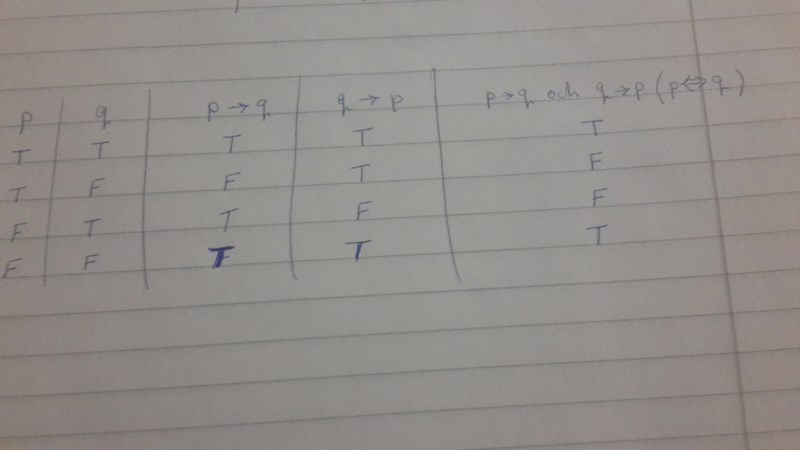 p q p → q q → p p→q och q→p (p⇔q)
T T T T T
T F F T F
F T T F F
F F T T T